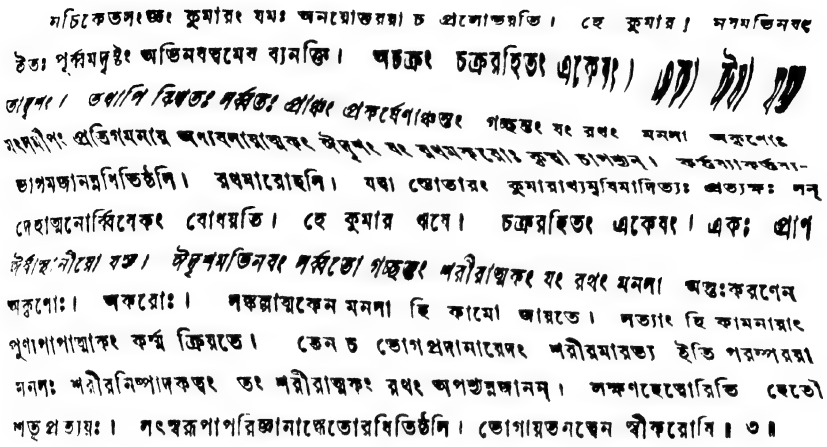 নচিকেতসং কুমারং যমঃ অনয়োত্তরয়া চ প্রলোভয়তি। হে কুমার! নবমভিনবং
ইতঃ পূর্ব্বমদৃষ্টং অভিনবত্বমেব ব্যনক্তি। অচক্রং চক্ররহিতং একেষং। একা ঈষা যস্য
তাদৃশং। তথাপি বিশ্বতঃ সর্ব্বতঃ প্রাঞ্চং প্রকর্ষেণাঞ্চন্তং গচ্ছন্তং যং রথং মনসা অকৃণোঃ
মৎসমীপং প্রতিগমনায় অধ্যবসায়াত্মকং ঈদৃশং যং রথমকরোঃ কৃত্বা চাপশ্যন্। কর্ত্তব্যাকর্ত্তব্য-
ভাগমজানন্নধিতিষ্ঠসি। রথমারোহসি। যদ্বা স্তোতারং কুমারাখ্যমৃষিমাদিত্যঃ প্রত্যক্ষঃ সন্
দেহাত্মনোর্ব্বিবেকং বোধয়তি। হে কুমার ঋষে। চক্ররহিতং একেষং। একঃ প্রাণ
ঈষাস্থানীয়ো যস্য। ঈদৃশমভিনবং সর্ব্বতো গচ্ছন্তং শরীরাত্মকং যং রথং মনসা অন্তঃকরণেন
অকৃণোঃ। অকরোঃ। সঙ্কল্পাত্মকেন মনসা হি কামো জায়তে। সত্যাং হি কামনায়াং
পুণ্যপাপাত্মকং কর্ম্ম ক্রিয়তে। তেন চ ভোগপ্রদানায়েদং শরীরমারভ্য ইতি পরম্পরয়া
মনসঃ শরীরনিষ্পাদকত্বং তং শরীরাত্মকং রথং অপশ্যন্নজানন্। লক্ষণহেত্বোরিতি হেতৌ
শতৃপ্রত্যয়ঃ। সৎস্বরূপাপরিজ্ঞানাদ্ধেতোরধিতিষ্ঠসি। ভোগায়তনত্বেন স্বীকরোষি॥ ৩॥